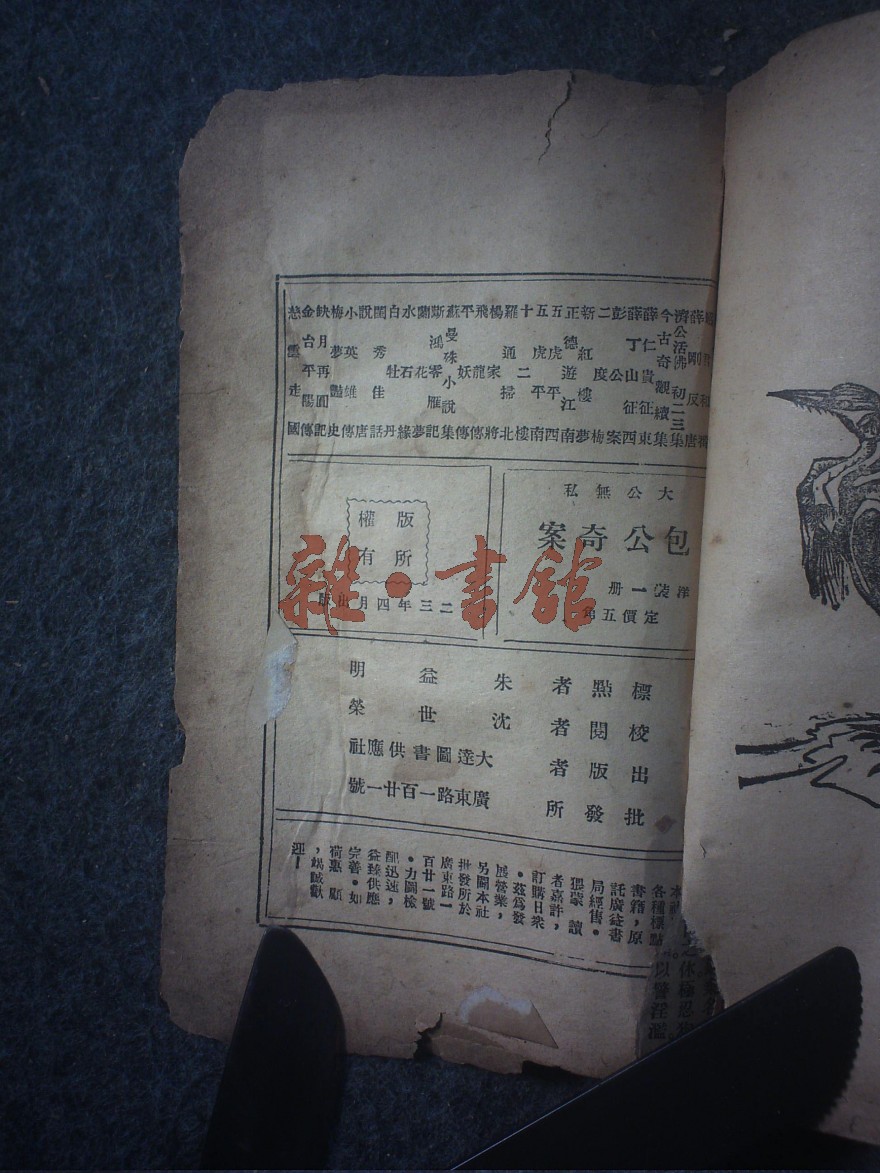 薛剛反唐
濟公活佛初二三集
今古奇觀續集
薛仁貴征東
薛丁山征西
彭公案
二度梅
新紅樓夢
正德遊江南
五虎平西
五虎平南
十二樓
羅通掃北
楊家將
飛龍傳
平妖傳
蘇曼殊小說集
斷鴻零雁記
蘭花夢
水石緣
白牡丹
閨秀佳話
說唐
小英雄傳
梅夢豔史
缺月再圓記
金台平陽傳
慈雲走國
大公無私
包公奇案
洋裝一冊
定價五角
版權
所有
二三年四月出版
標點者 朱益明
校閱者 沈世榮
出版者 大達圖書供應社
批發所 廣東路一百廿一號
各種標點
書籍，原
託廣益書
局經售。
猥蒙讀
者嘉許，
訂購日衆
。茲爲發
展營業，
另闢本社
批發所於
廣東路一
百廿一號
。力圖檢
配迅速，
益臻供應
完善。如
荷惠顧
，竭誠歡
迎！
雜·書館